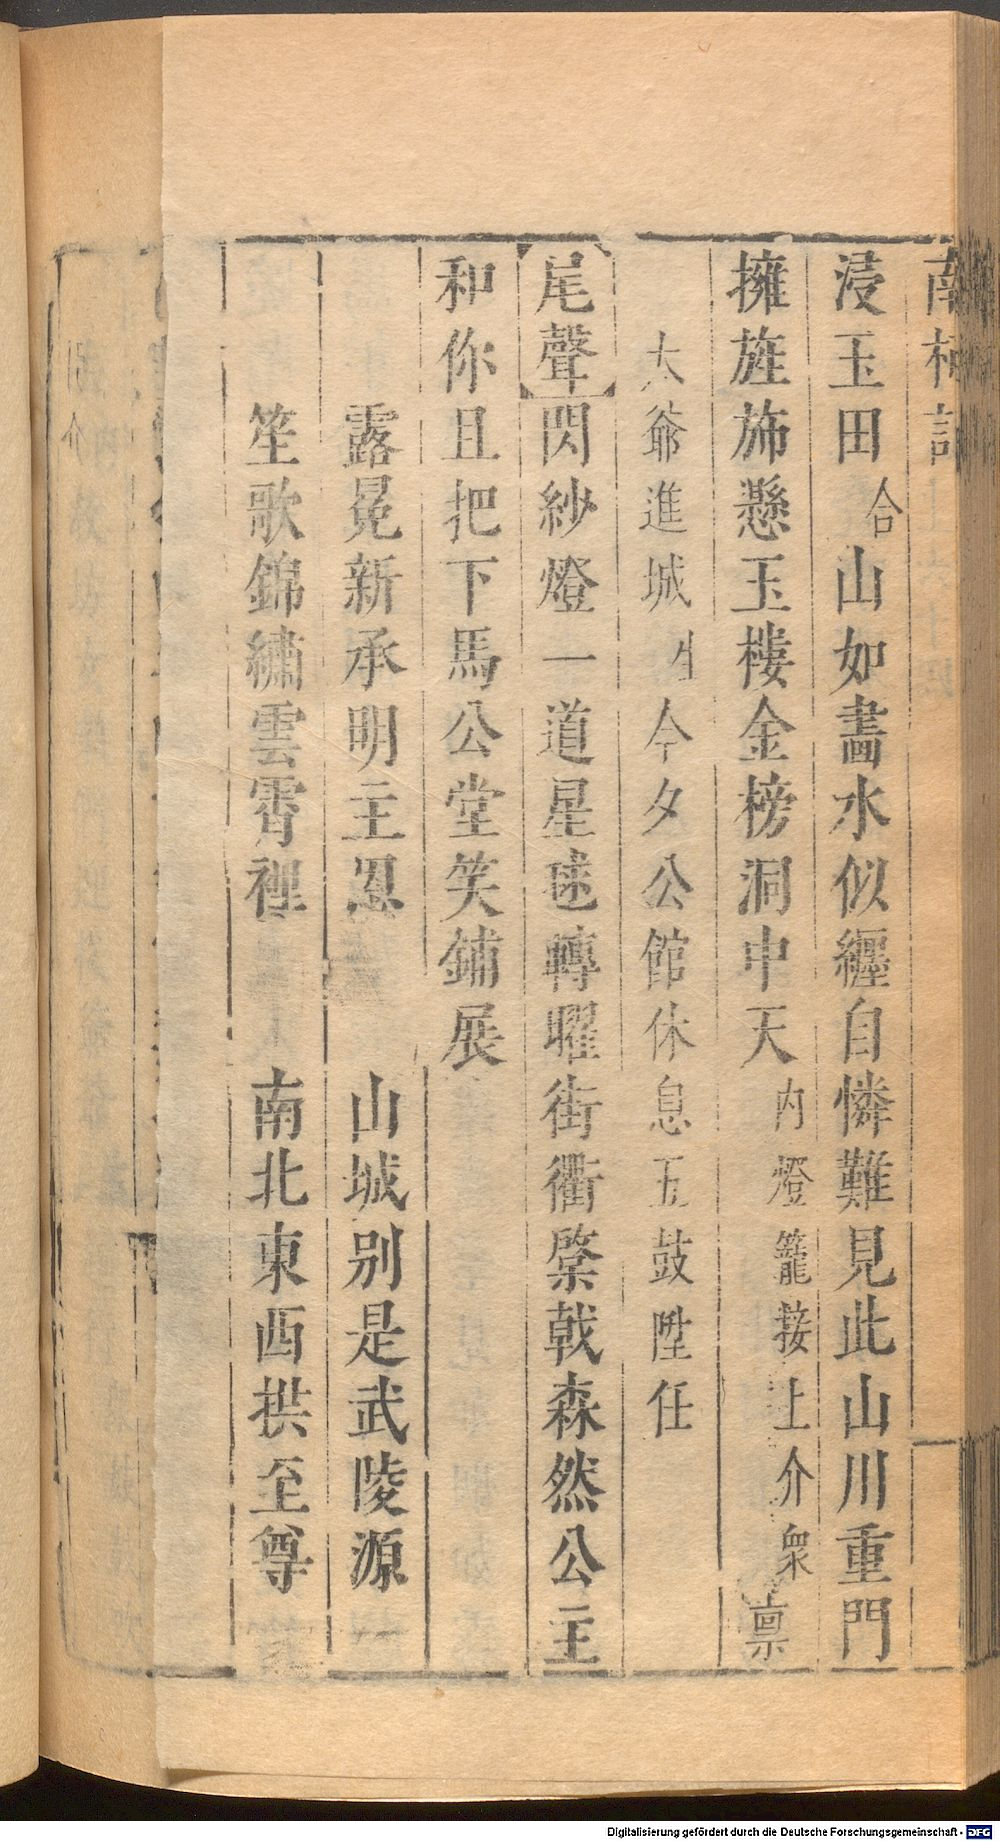 南柯記
浸玉田合山如畵水似纒自憐難見此山川重門
擁旌斾懸玉樓金榜洞中天内燈籠接上介衆禀
大爺進城生今夕公館休息五鼓陞任
尾聲閃紗燈一道星毬轉曜街衢棨戟森然公主
和你且把下馬公堂笑鋪展
露冕新承明主恩　山城别是武陵源
笙歌錦繡雲霄裡　南北東西拱至尊
Digitalisierung gefördert durch die Deutsche Forschungsgemeinschaft - DFG